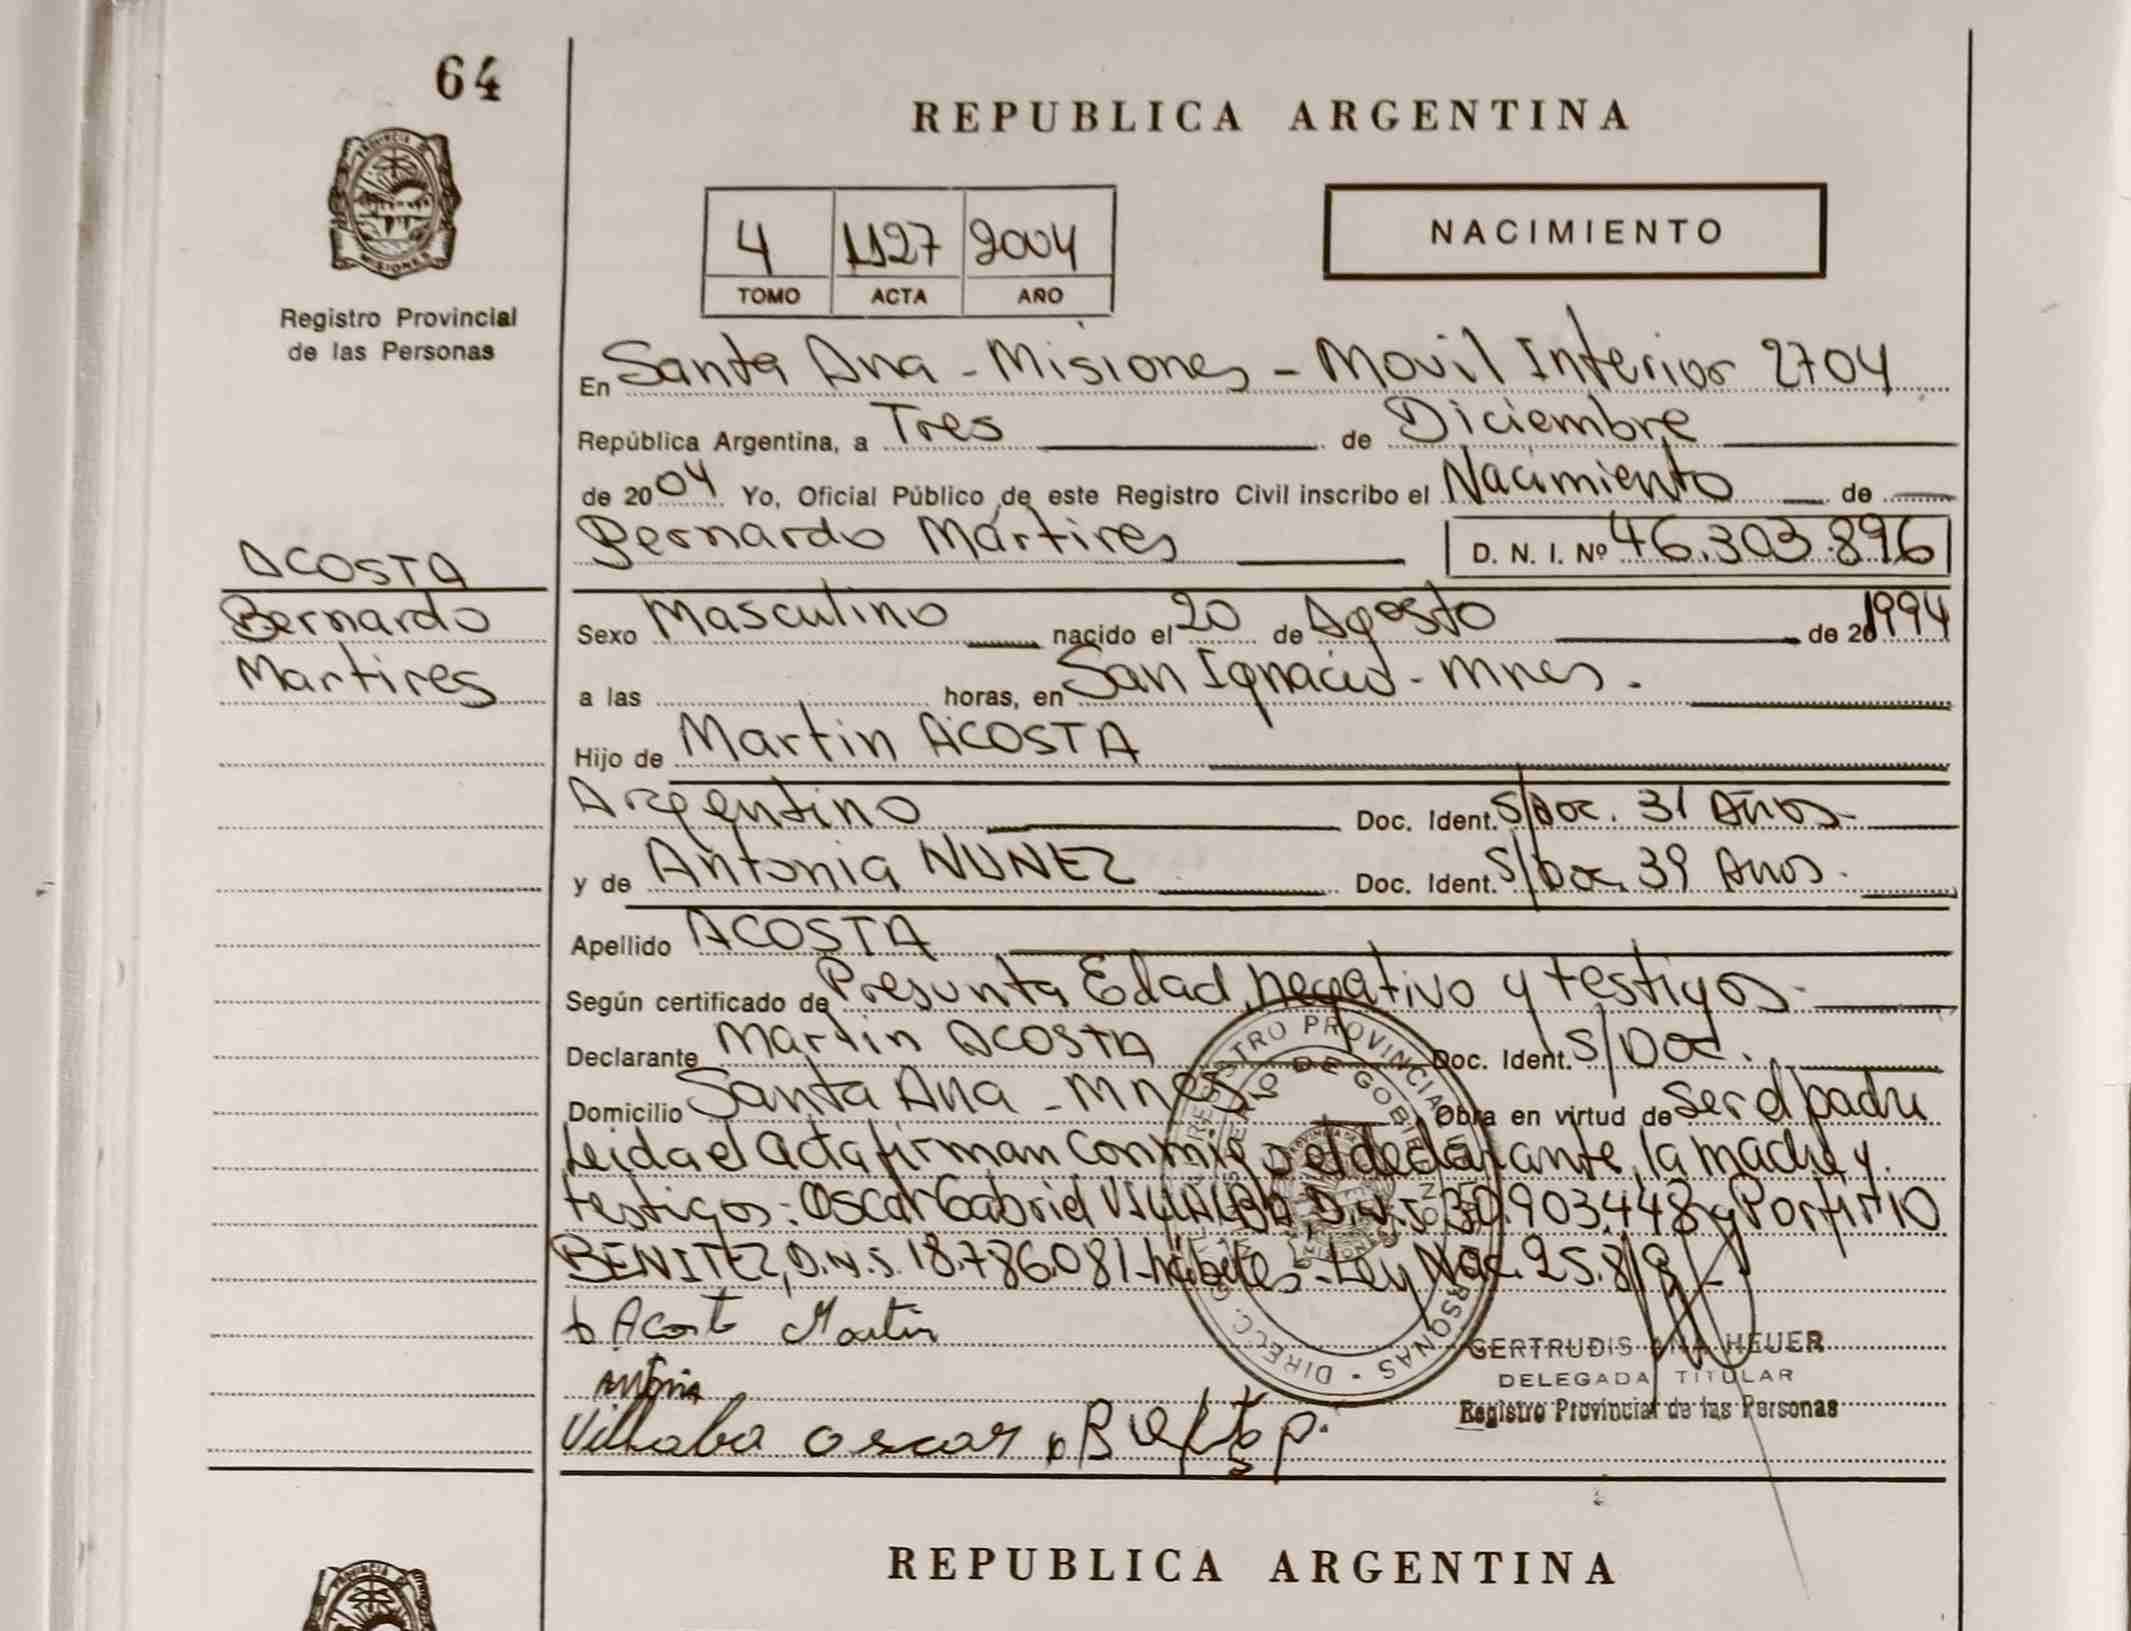 64
REPUBLICA ARGENTINA
PROVINCIA DE
MISIONES
Registro Provincial
de las Personas
4 1127 2004
TOMO ACTA AÑO
NACIMIENTO
En Santa Ana - Misiones - Movil Interior 2704
República Argentina, a Tres de Diciembre
de 2004 Yo, Oficial Público de este Registro Civil inscribo el Nacimiento de
Bernardo Martires D. N. I. Nº 46.303.896
ACOSTA
Bernardo
Martires
Sexo Masculino nacido el 20 de Agosto de 1994
a las horas, en San Ignacio - Mnes.
Hijo de Martin ACOSTA
Argentino Doc. Ident. S/Doc. 31 Años.
y de Antonia NUNEZ Doc. Ident. S/Doc. 39 Anos.
Apellido ACOSTA
Según certificado de Presunta Edad, negativo y testigos.
Declarante Martin ACOSTA Doc. Ident. S/Doc.
Domicilio Santa Ana - Mnes Obra en virtud de ser el padre
Leida el acta firman conmigo el declarante, la madre y
testigos: Oscar Gabriel VILLALBA, D.N.I. 30.903.448 y Porfirio
BENITEZ, D.N.I. 18.786.081 - hábiles - Ley Nac. 25.819 -
Acosta Martin
Antonia
Villalba oscar
GERTRUDIS ANA HEUER
DELEGADA TITULAR
Registro Provincial de las Personas
REPUBLICA ARGENTINA
PROVINCIA DE